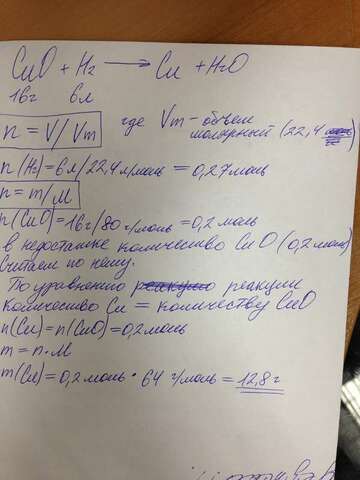 CuO + H₂ → Cu + H₂O
16г 6л
n = V/Vm где Vm - объем
молярный (22,4
n(H₂) = 6л/22,4 л/моль = 0,27моль
n = m/M
n(CuO) = 16г/80 г/моль = 0,2 моль
в недостатке количество CuO (0,2 моль)
Считаем по нему.
По уравнению реакции
количество Cu = количеству CuO
n(Cu) = n(CuO) = 0,2 моль
m = n·M
m(Cu) = 0,2 моль · 64 г/моль = 12,8 г